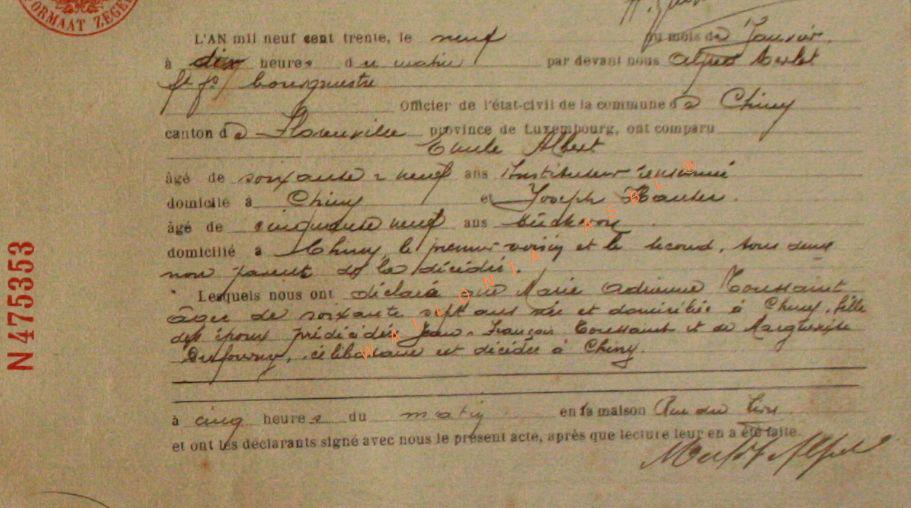 FORMAAT ZEGEL
L'AN mil neuf cent trente, le neuf du mois de Janvier
à dix heures du matin par devant nous Alfred Merlot
ff. fs bourgmestre
Officier de l'état-civil de la commune de Chiny
canton de Florenville province de Luxembourg, ont comparu
Emile Albert
âgé de soixante-neuf ans Instituteur retraité
domicilié à Chiny et Joseph
âgé de cinquante neuf ans bûcheron
domicilié à Chiny, le premier voisin et le second, tous deux
non parent de la décédée.
Lesquels nous ont déclaré que Marie Adrienne Toussaint
âgée de soixante sept ans née et domiciliée à Chiny, fille
des époux prédécédés Jean-François Toussaint et de Marguerite
célibataire est décédée à Chiny.
à cinq heures du matin en sa maison Rue du
et ont les déclarants signé avec nous le présent acte, après que lecture leur en a été faite.
Merlot Alfred
N 475353